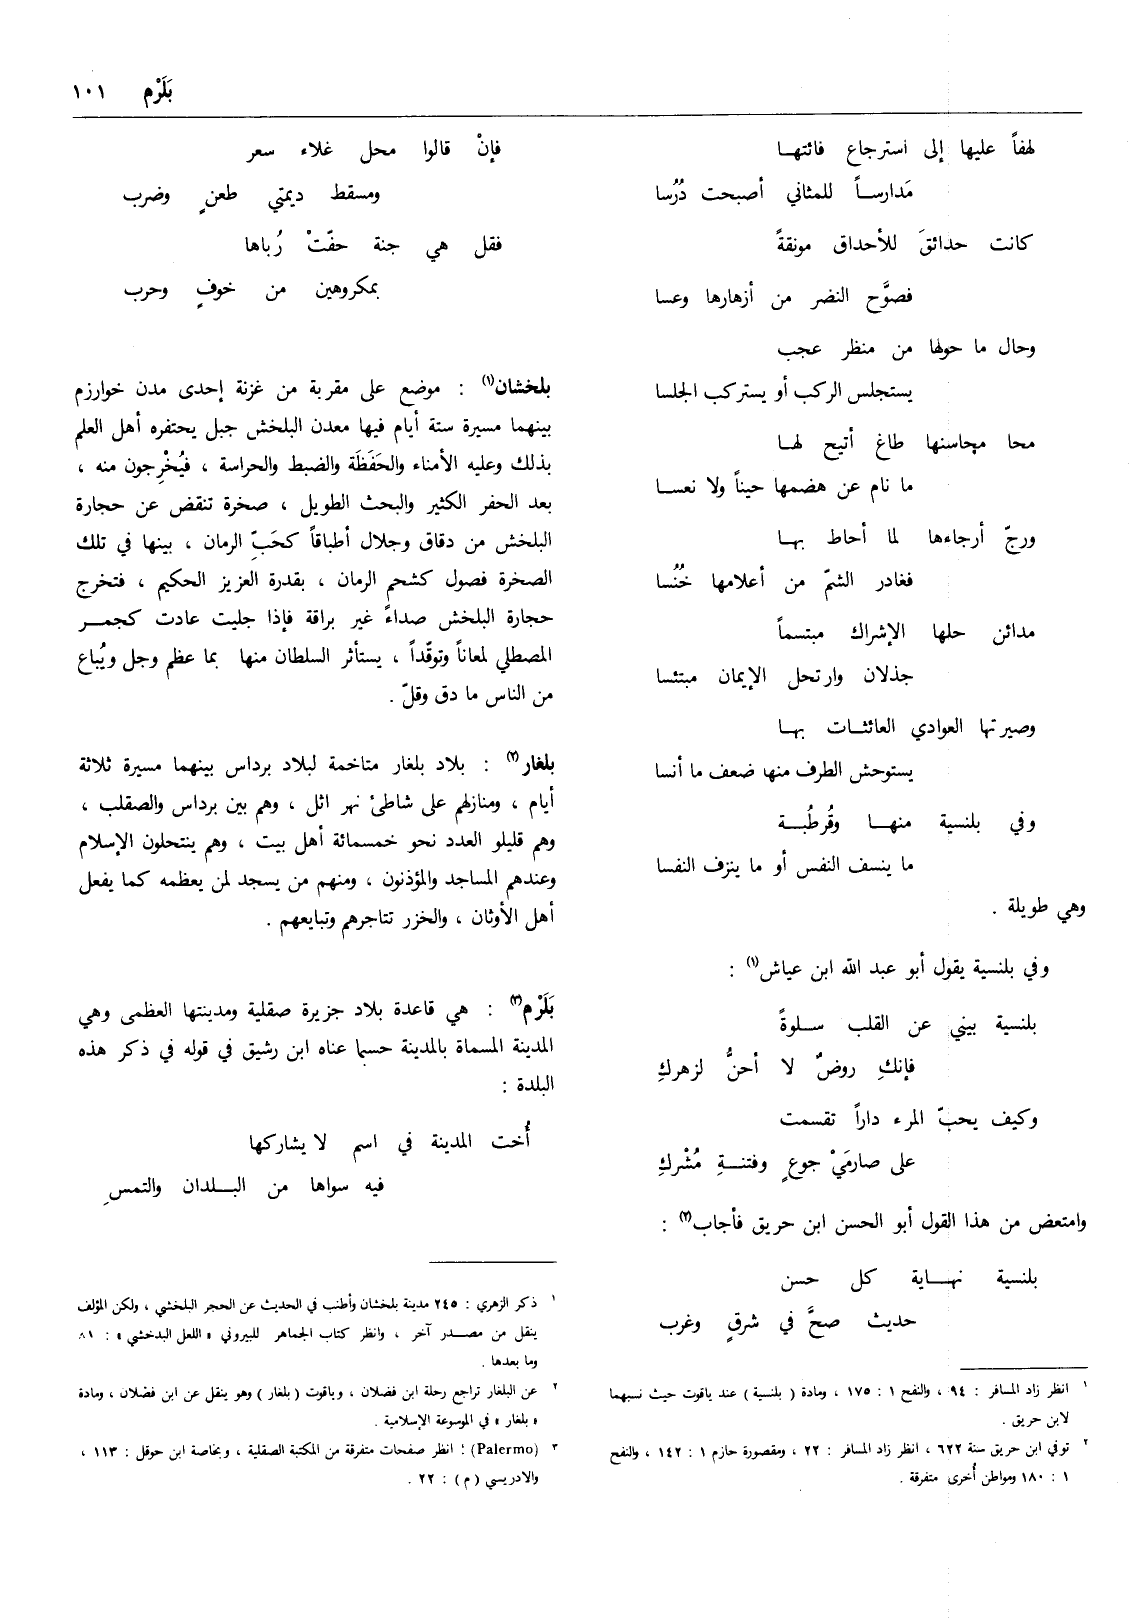 بَلَرْم ١٠١
لهفاً عليها إلى استرجاع فائتهـا
مَدارســاً للمثاني أصبحت دُرُسا
كانت حدائقَ للأحداق مونقةً
فصوَّح النضر من أزهارها وعسا
وحال ما حولها من منظر عجب
يستجلس الركب أو يستركب الجلسا
محا محاسنها طاغ أتيح لهـا
ما نام عن هضمها حيناً ولا نعسـا
ورجّ أرجاءها لما أحاط بهـا
فغادر الشمّ من أعلامها خُنُسا
مدائن حلها الإشراك مبتسماً
جذلان وارتحل الإيمان مبتئسا
وصيرتها العوادي العائثـات بهـا
يستوحش الطرف منها ضعف ما أنسا
وفي بلنسية منهـا وقُرطُبـة
ما ينسف النفس أو ما ينزف النفسا
وهي طويلة .
وفي بلنسية يقول أبو عبد الله ابن عياش(١) :
بلنسية بيني عن القلب سـلوةً
فإنكِ روضٌ لا أحنُّ لزهركِ
وكيف يحبّ المرء داراً تقسمت
على صارمَيْ جوعٍ وفتنـةِ مُشْركِ
وامتعض من هذا القول أبو الحسن ابن حريق فأجاب(٢) :
بلنسية نهـاية كل حسن
حديث صحَّ في شرقٍ وغرب
١ انظر زاد المسافر : ٩٤ ، والنفح ١ : ١٧٥ ، ومادة ( بلنسية ) عند ياقوت حيث نسبهما
لابن حريق .
٢ توفي ابن حريق سنة ٦٢٢ ، انظر زاد المسافر : ٢٢ ، ومقصورة حازم ١ : ١٤٢ ، والنفح
١ : ١٨٠ ومواطن أُخرى متفرقة .
فإنْ قالوا محل غلاء سعر
ومسقط ديمتي طعنٍ وضرب
فقل هي جنة حفّتْ رُباها
بمكروهين من خوفٍ وحرب
بلخشان(١) : موضع على مقربة من غزنة إحدى مدن خوارزم
بينهما مسيرة ستة أيام فيها معدن البلخش جبل يحتفره أهل العلم
بذلك وعليه الأمناء والحَفَظَة والضبط والحراسة ، فيُخْرِجون منه ،
بعد الحفر الكثير والبحث الطويل ، صخرة تنقض عن حجارة
البلخش من دقاق وجلال أطباقاً كحَبّ الرمان ، بينها في تلك
الصخرة فصول كشحم الرمان ، بقدرة العزيز الحكيم ، فتخرج
حجارة البلخش صداءً غير براقة فإذا جليت عادت كجمـر
المصطلي لمعاناً وتوقّداً ، يستأثر السلطان منها بما عظم وجل ويُباع
من الناس ما دق وقلّ .
بلغار(٢) : بلاد بلغار متاخمة لبلاد برداس بينهما مسيرة ثلاثة
أيام ، ومنازلهم على شاطئ نهر اثل ، وهم بين برداس والصقلب ،
وهم قليلو العدد نحو خمسمائة أهل بيت ، وهم ينتحلون الإسلام
وعندهم المساجد والمؤذنون ، ومنهم من يسجد لمن يعظمه كما يفعل
أهل الأوثان ، والخزر تتاجرهم وتبايعهم .
بَلَرْم(٣) : هي قاعدة بلاد جزيرة صقلية ومدينتها العظمى وهي
المدينة المسماة بالمدينة حسبما عناه ابن رشيق في قوله في ذكر هذه
البلدة :
أُخت المدينة في اسم لا يشاركها
فيه سواها من البـلدان والتمسِ
١ ذكر الزهري : ٢٤٥ مدينة بلخشان وأطنب في الحديث عن الحجر البلخشي ، ولكن المؤلف
ينقل من مصـدر آخر ، وانظر كتاب الجماهر للبيروني « اللعل البدخشي » : ٨١
وما بعدها .
٢ عن البلغار تراجع رحلة ابن فضلان ، وياقوت ( بلغار ) وهو ينقل عن ابن فضلان ، ومادة
« بلغار » في الموسوعة الإسلامية .
٣ (Palermo) ؛ انظر صفحات متفرقة من المكتبة الصقلية ، وبخاصة ابن حوقل : ١١٣ ،
والادريسي ( م ) : ٢٢ .